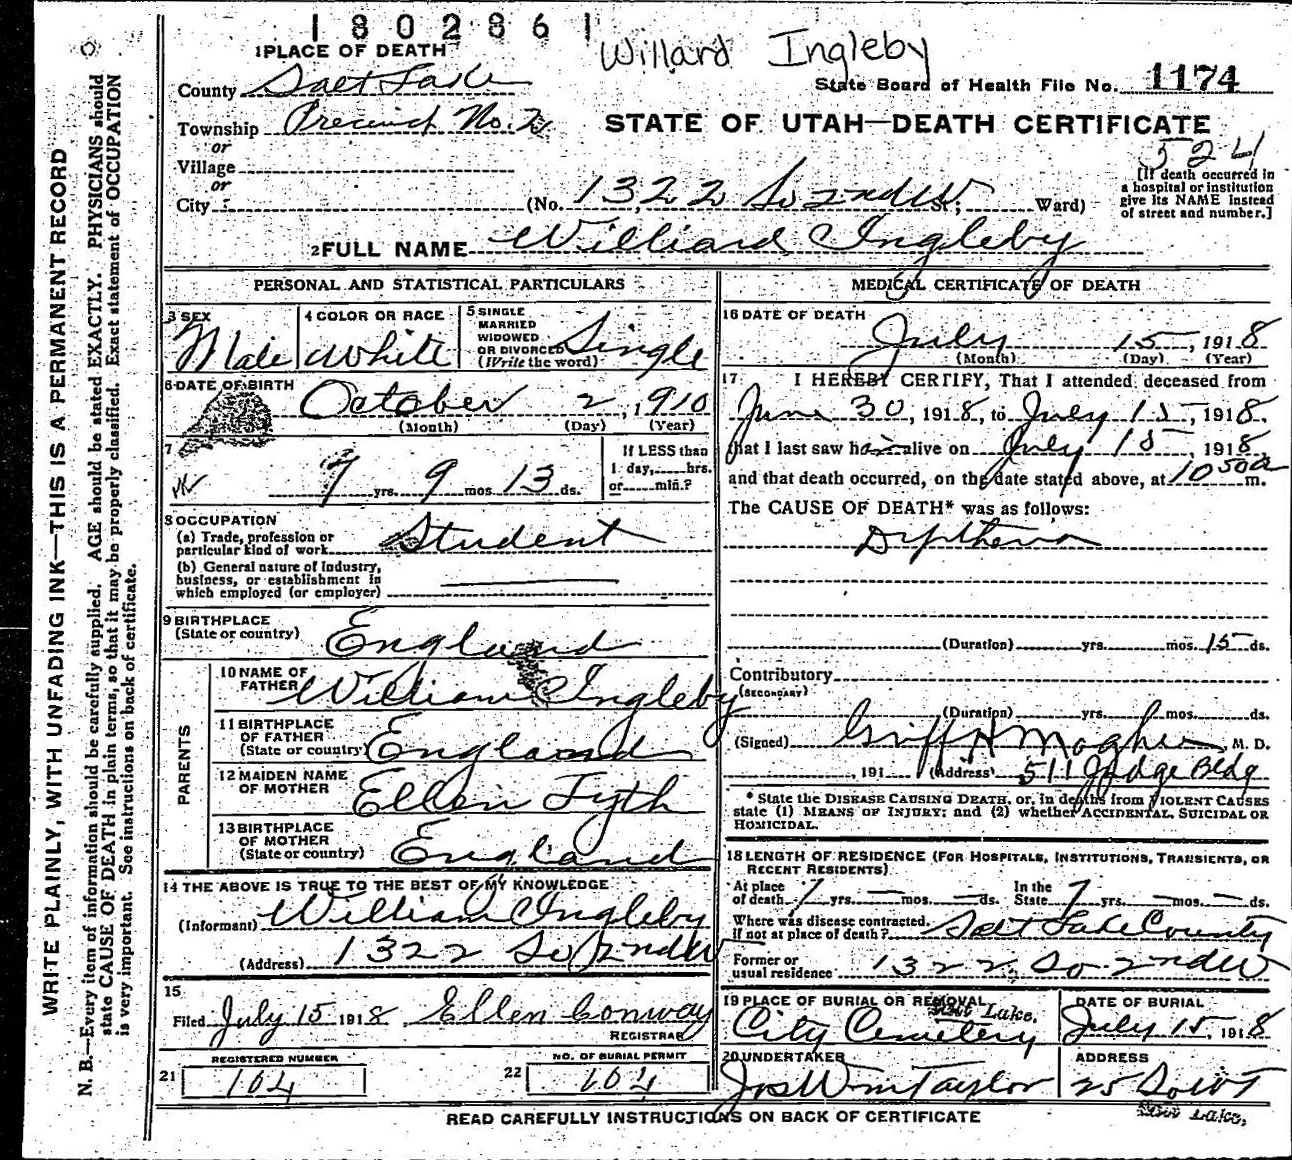 1802861
Willard Ingleby
1 PLACE OF DEATH
State Board of Health File No. 1174
County Salt Lake
Township Precinct No. 2
STATE OF UTAH—DEATH CERTIFICATE
or
Village
524
or
[If death occurred in
a hospital or institution
give its NAME instead
of street and number.]
City (No. 1322 So 2nd W St; Ward)
2 FULL NAME Williard Ingleby
PERSONAL AND STATISTICAL PARTICULARS
3 SEX
Male
4 COLOR OR RACE
White
5 SINGLE
MARRIED
WIDOWED
OR DIVORCED
(Write the word)
Single
6 DATE OF BIRTH
October 2, 1910
(Month) (Day) (Year)
7
7 yrs. 9 mos. 13 ds.
If LESS than
1 day, hrs.
or min.?
8 OCCUPATION
(a) Trade, profession or
particular kind of work Student
(b) General nature of industry,
business, or establishment in
which employed (or employer)
9 BIRTHPLACE
(State or country) England
PARENTS
10 NAME OF
FATHER William Ingleby
11 BIRTHPLACE
OF FATHER
(State or country) England
12 MAIDEN NAME
OF MOTHER Ellen Fyth
13 BIRTHPLACE
OF MOTHER
(State or country) England
14 THE ABOVE IS TRUE TO THE BEST OF MY KNOWLEDGE
(Informant) William Ingleby
(Address) 1322 So 2nd W
15
Filed July 15 1918 Ellen Conway
REGISTRAR
REGISTERED NUMBER
21 104
NO. OF BURIAL PERMIT
22 104
MEDICAL CERTIFICATE OF DEATH
16 DATE OF DEATH
July 15, 1918
(Month) (Day) (Year)
17 I HEREBY CERTIFY, That I attended deceased from
June 30, 1918, to July 15, 1918,
that I last saw him alive on July 15, 1918,
and that death occurred, on the date stated above, at 10 50 a m.
The CAUSE OF DEATH* was as follows:
Diptheria
(Duration) yrs. mos. 15 ds.
Contributory
(SECONDARY)
(Duration) yrs. mos. ds.
(Signed) M. D.
, 191 (Address) 511 Judge Bldg
* State the DISEASE CAUSING DEATH, or, in deaths from VIOLENT CAUSES
state (1) MEANS OF INJURY; and (2) whether ACCIDENTAL, SUICIDAL OR
HOMICIDAL.
18 LENGTH OF RESIDENCE (FOR HOSPITALS, INSTITUTIONS, TRANSIENTS, OR
RECENT RESIDENTS)
At place
of death 7 yrs. — mos. — ds.
In the
State 7 yrs. — mos. — ds.
Where was disease contracted,
if not at place of death? Salt Lake County
Former or
usual residence 1322 So 2nd W
19 PLACE OF BURIAL OR REMOVAL
Salt Lake.
City Cemetery
DATE OF BURIAL
July 15, 1918
20 UNDERTAKER
Jos Wm Taylor
ADDRESS
25 So W T
Salt Lake.
READ CAREFULLY INSTRUCTIONS ON BACK OF CERTIFICATE
WRITE PLAINLY, WITH UNFADING INK—THIS IS A PERMANENT RECORD
N. B.—Every item of information should be carefully supplied. AGE should be stated EXACTLY. PHYSICIANS should
state CAUSE OF DEATH in plain terms, so that it may be properly classified. Exact statement of OCCUPATION
is very important. See instructions on back of certificate.